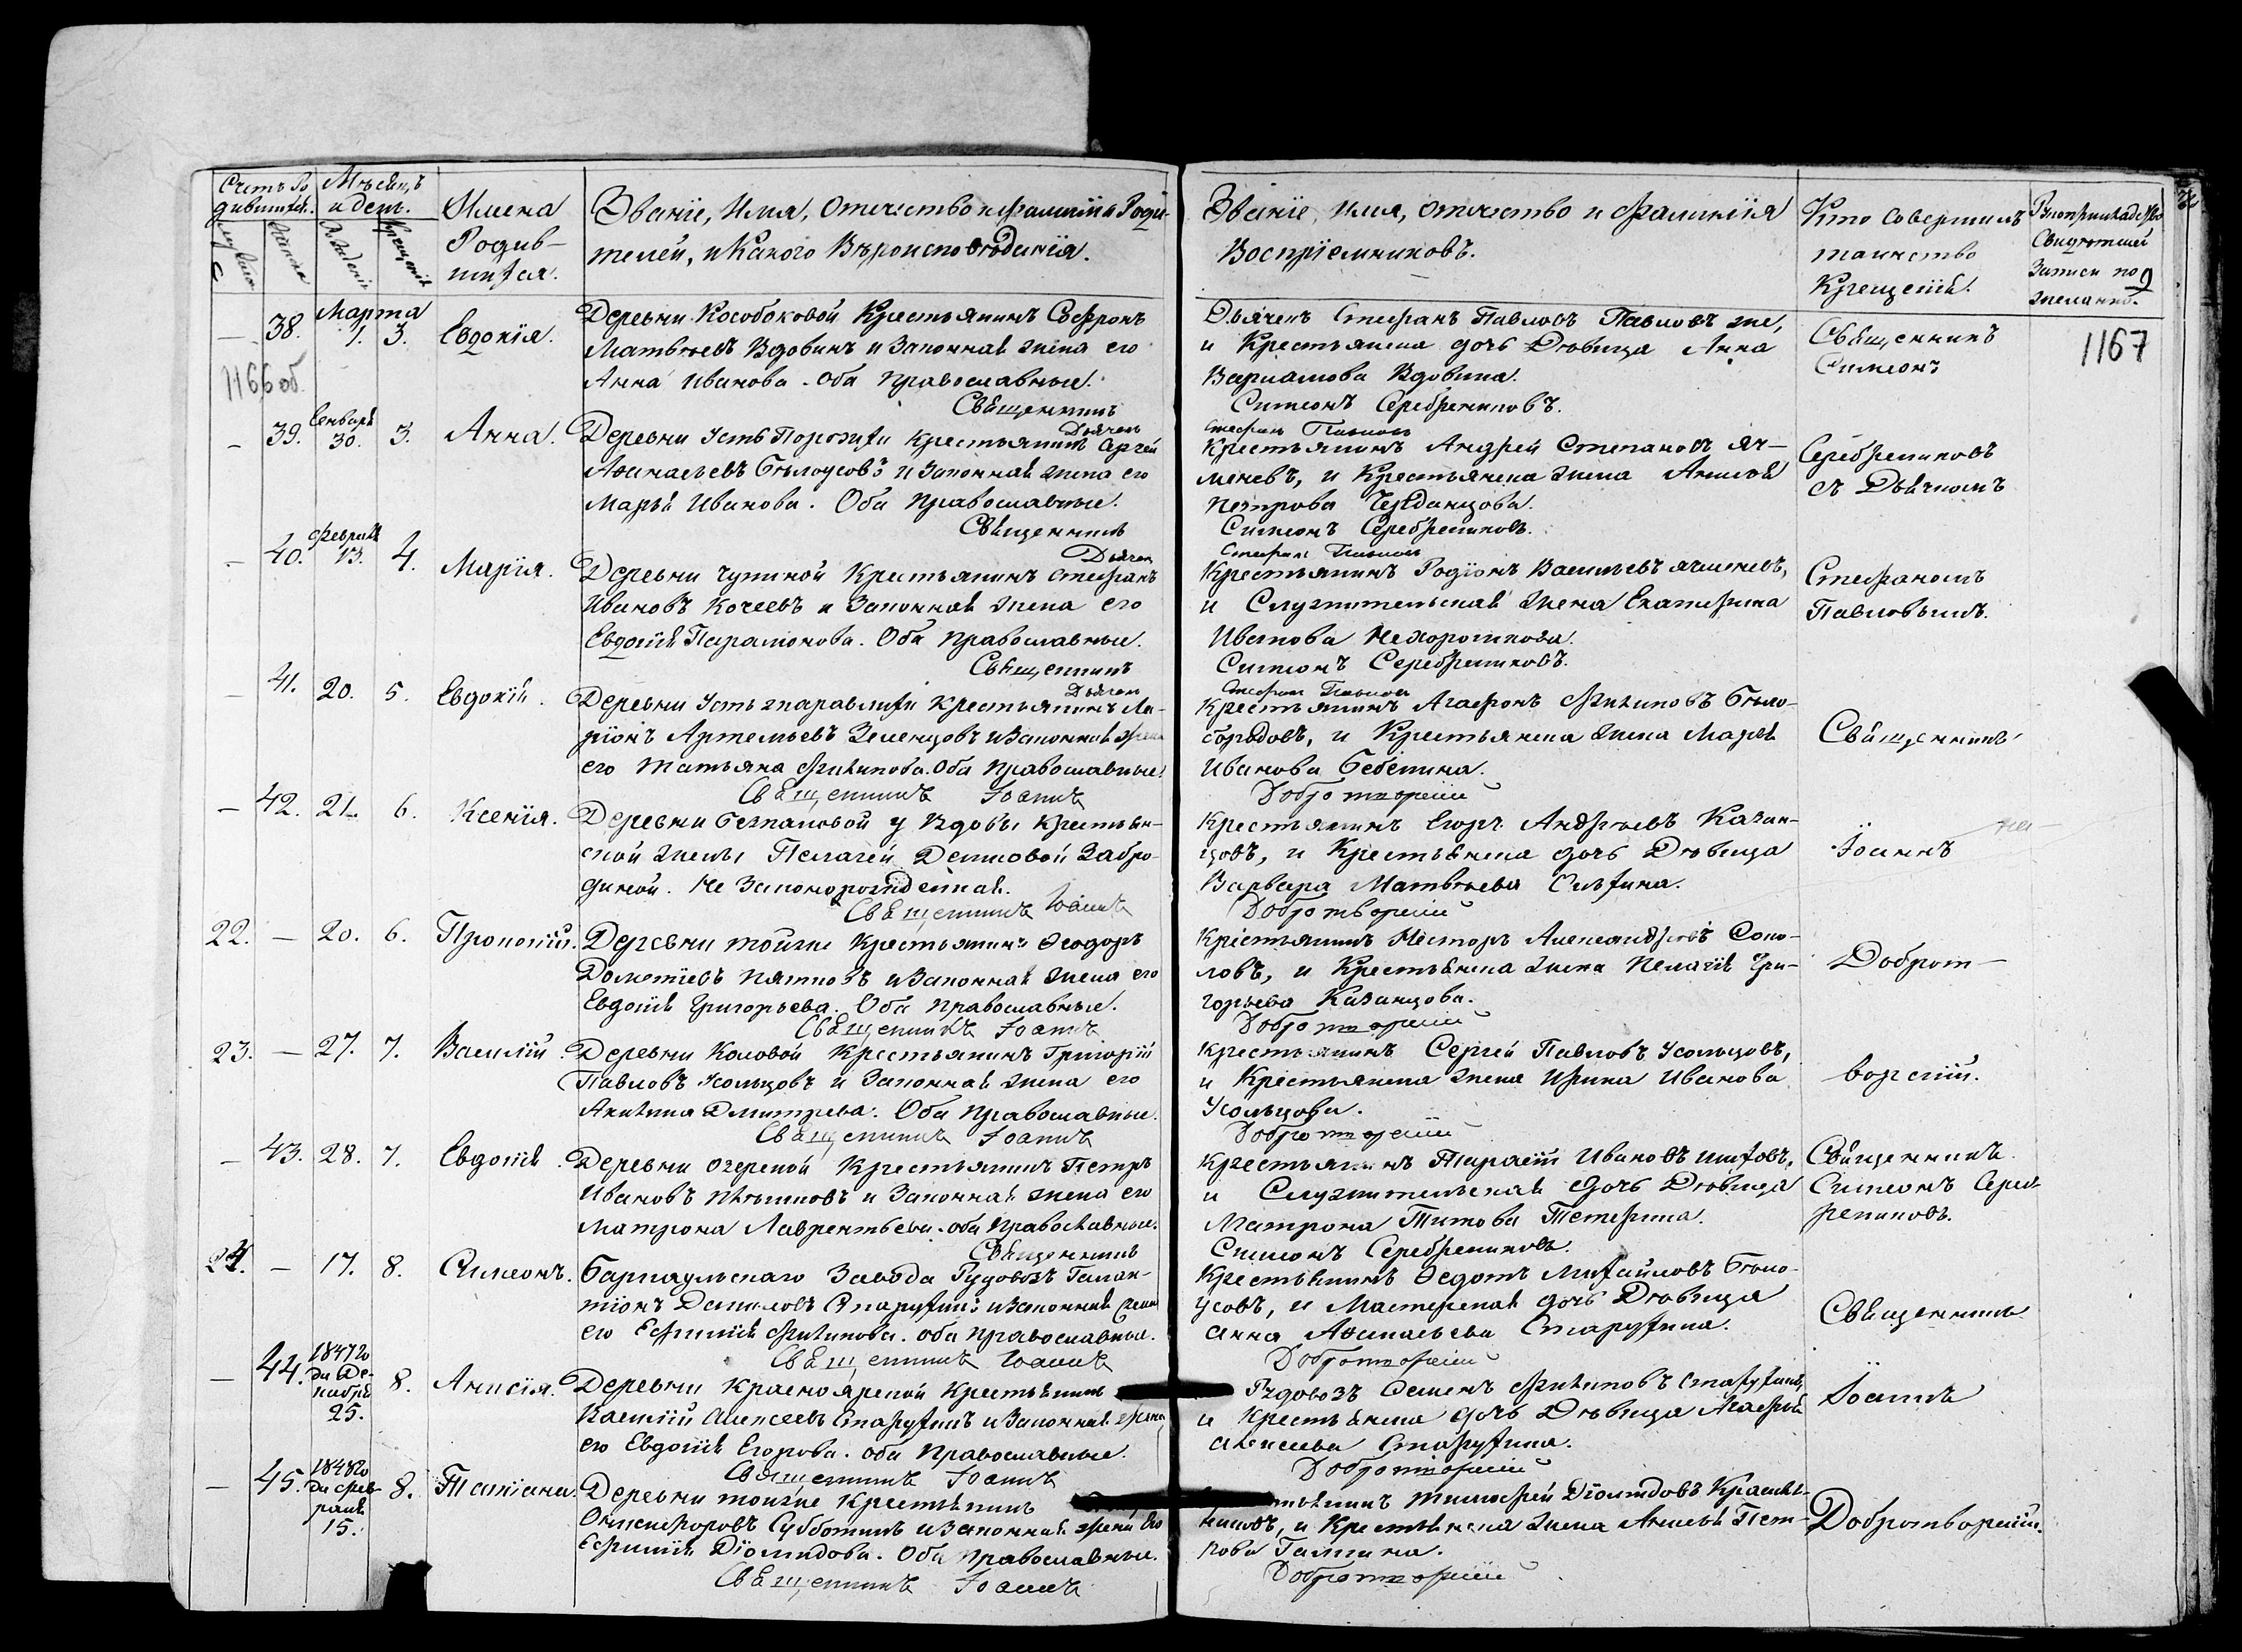 Счетъ Ро
дившихс.
Мѣсяцъ
и день.
Имена
Родив-
шихся.
Званіе, Имя, Отчество и фамилія Роди-
телей, и Какого Вѣроисповѣданія.
Званіе, имя, отчество и Фамиліия
Воспріемниковъ.
Кто совершилъ
таинство
Крещенія.
Записи по
желанію.
9
Марта
— 38. 1. 3. Евдокія.
1166 об.
Деревни Кособоковой Крестьянинъ Софронъ
Матвѣевъ Вдовинъ и Законная жена его
Анна Иванова. Оба Православные.
Священникъ
Дьячекъ Стефанъ Павловъ Павловъ же,
и Крестьянска дочь Дѣвица Анна
Варламова Вдовина.
Симеонъ Серебрениковъ.
Священникъ
Симеонъ
1167
— 39. Генваря 30. 3. Анна.
Дьячекъ
Деревни Усть Порозихи Крестьянинъ Сергей
Афанасьевъ Бѣлоусовъ и Законная жена его
Марья Иванова. Оба Православные.
Священникъ
Стефанъ Павловъ
Крестьянинъ Андрей Степановъ Яч-
меневъ, и Крестьянска жена Анисья
Петрова Черданцова.
Симеонъ Серебрениковъ.
Серебрениковъ
съ Дьячкомъ
— 40. Февраля 13. 4. Марія.
Дьячекъ
Деревни Чупиной Крестьянинъ Стефанъ
Ивановъ Кочеевъ и Законная жена его
Евдокія Парамонова. Оба Православные.
Священникъ
Стефанъ Павловъ
Крестьянинъ Родіонъ Васильевъ Ячменевъ,
и Служительская жена Екатерина
Иванова Нехорошкова.
Симеонъ Серебрениковъ.
Стефаномъ
Павловымъ.
— 41. 20. 5. Евдокія.
Дьячекъ
Деревни Усть журавлихи Крестьянинъ Ла-
ріонъ Артемьевъ Зеленцовъ и Законная жена
его Татьяна Филипова. Оба Православные.
Священникъ Іоаннъ
Стефанъ Павловъ
Крестьянинъ Агафонъ Филиповъ Бѣло-
бородовъ, и Крестьянска жена Марья
Иванова Бебенина.
Добротворскій
Священникъ
— 42. 21. 6. Ксенія.
Деревни Безпаловой у Вдовы Крестьян-
ской жены Пелагеи Демидовой Забро-
диной. Не Законорожденная.
Священникъ Іоаннъ
Крестьянинъ Егоръ Андреевъ Казан-
цовъ, и Крестьянска дочь Дѣвица
Варвара Матвѣева
Добротворскій
Іоаннъ
22. — 20. 6. Прокопій.
Деревни тойже Крестьянинъ Ѳеодоръ
Дометіевъ Пятковъ и Законная жена его
Евдокія Григорьева. Оба Православные.
Священникъ Іоаннъ
Крестьянинъ Несторъ Александровъ Соко-
ловъ, и Крестьянска жена Пелагія Гри-
горьева Казанцова.
Добротворскій
Доброт-
23. — 27. 7. Василій.
Деревни Коловой Крестьянинъ Григорій
Павловъ Усольцовъ и Законная жена его
Акилина Дмитрева. Оба Православные.
Священникъ Іоаннъ
Крестьянинъ Сергей Павловъ Усольцовъ,
и Крестьянска жена Ирина Иванова
Усольцова.
Добротворскій
ворскій.
— 43. 28. 7. Евдокія.
Деревни Озерской Крестьянинъ Петръ
Ивановъ Пѣтшковъ и Законная жена его
Матрона Лаврентьева. оба Православные.
Священникъ
Крестьянинъ Тарасій Ивановъ
и Служительская дочь Дѣвица
Матрона Титова Тетерина.
Симеонъ Серебрениковъ.
Священникъ
Симеонъ Сереб-
рениковъ.
24. — 17. 8. Симеонъ.
Барнаульскаго Завода Рудовозъ Галак-
тіонъ Даниловъ Старухинъ и Законная жена
его Ефимія Филипова. оба Православные.
Священникъ Іоаннъ
Крестьянинъ Ѳедотъ Михайловъ Бѣло-
усовъ, и Мастерская дочь Дѣвица
Анна Афанасьева Старухина.
Добротворскій
Священникъ
— 44. 1847го да Де- кабря 25. 8. Анисія.
Деревни Красноярской Крестьянинъ
Василій Алексеевъ Старухинъ и Законная жена
его Евдокія Егорова. оба Православные.
Священникъ Іоаннъ
Рудовозъ Семенъ Филиповъ Старухинъ,
и Крестьянска дочь Дѣвица Агафья
Алексеева Старухина.
Добротворскій
Іоаннъ
— 45. 1848го да фев- раля 15. 8. Татіана.
Деревни тойже Крестьянинъ
Онисифоровъ Субботинъ и Законная жена Его
Ефимія Діомидова. Оба Православные.
Священникъ Іоаннъ
Тимофей Діомидовъ Красиль-
никовъ, и Крестьянска жена Анисья Пет-
рова Галкина.
Добротворскій
Добротворскій.